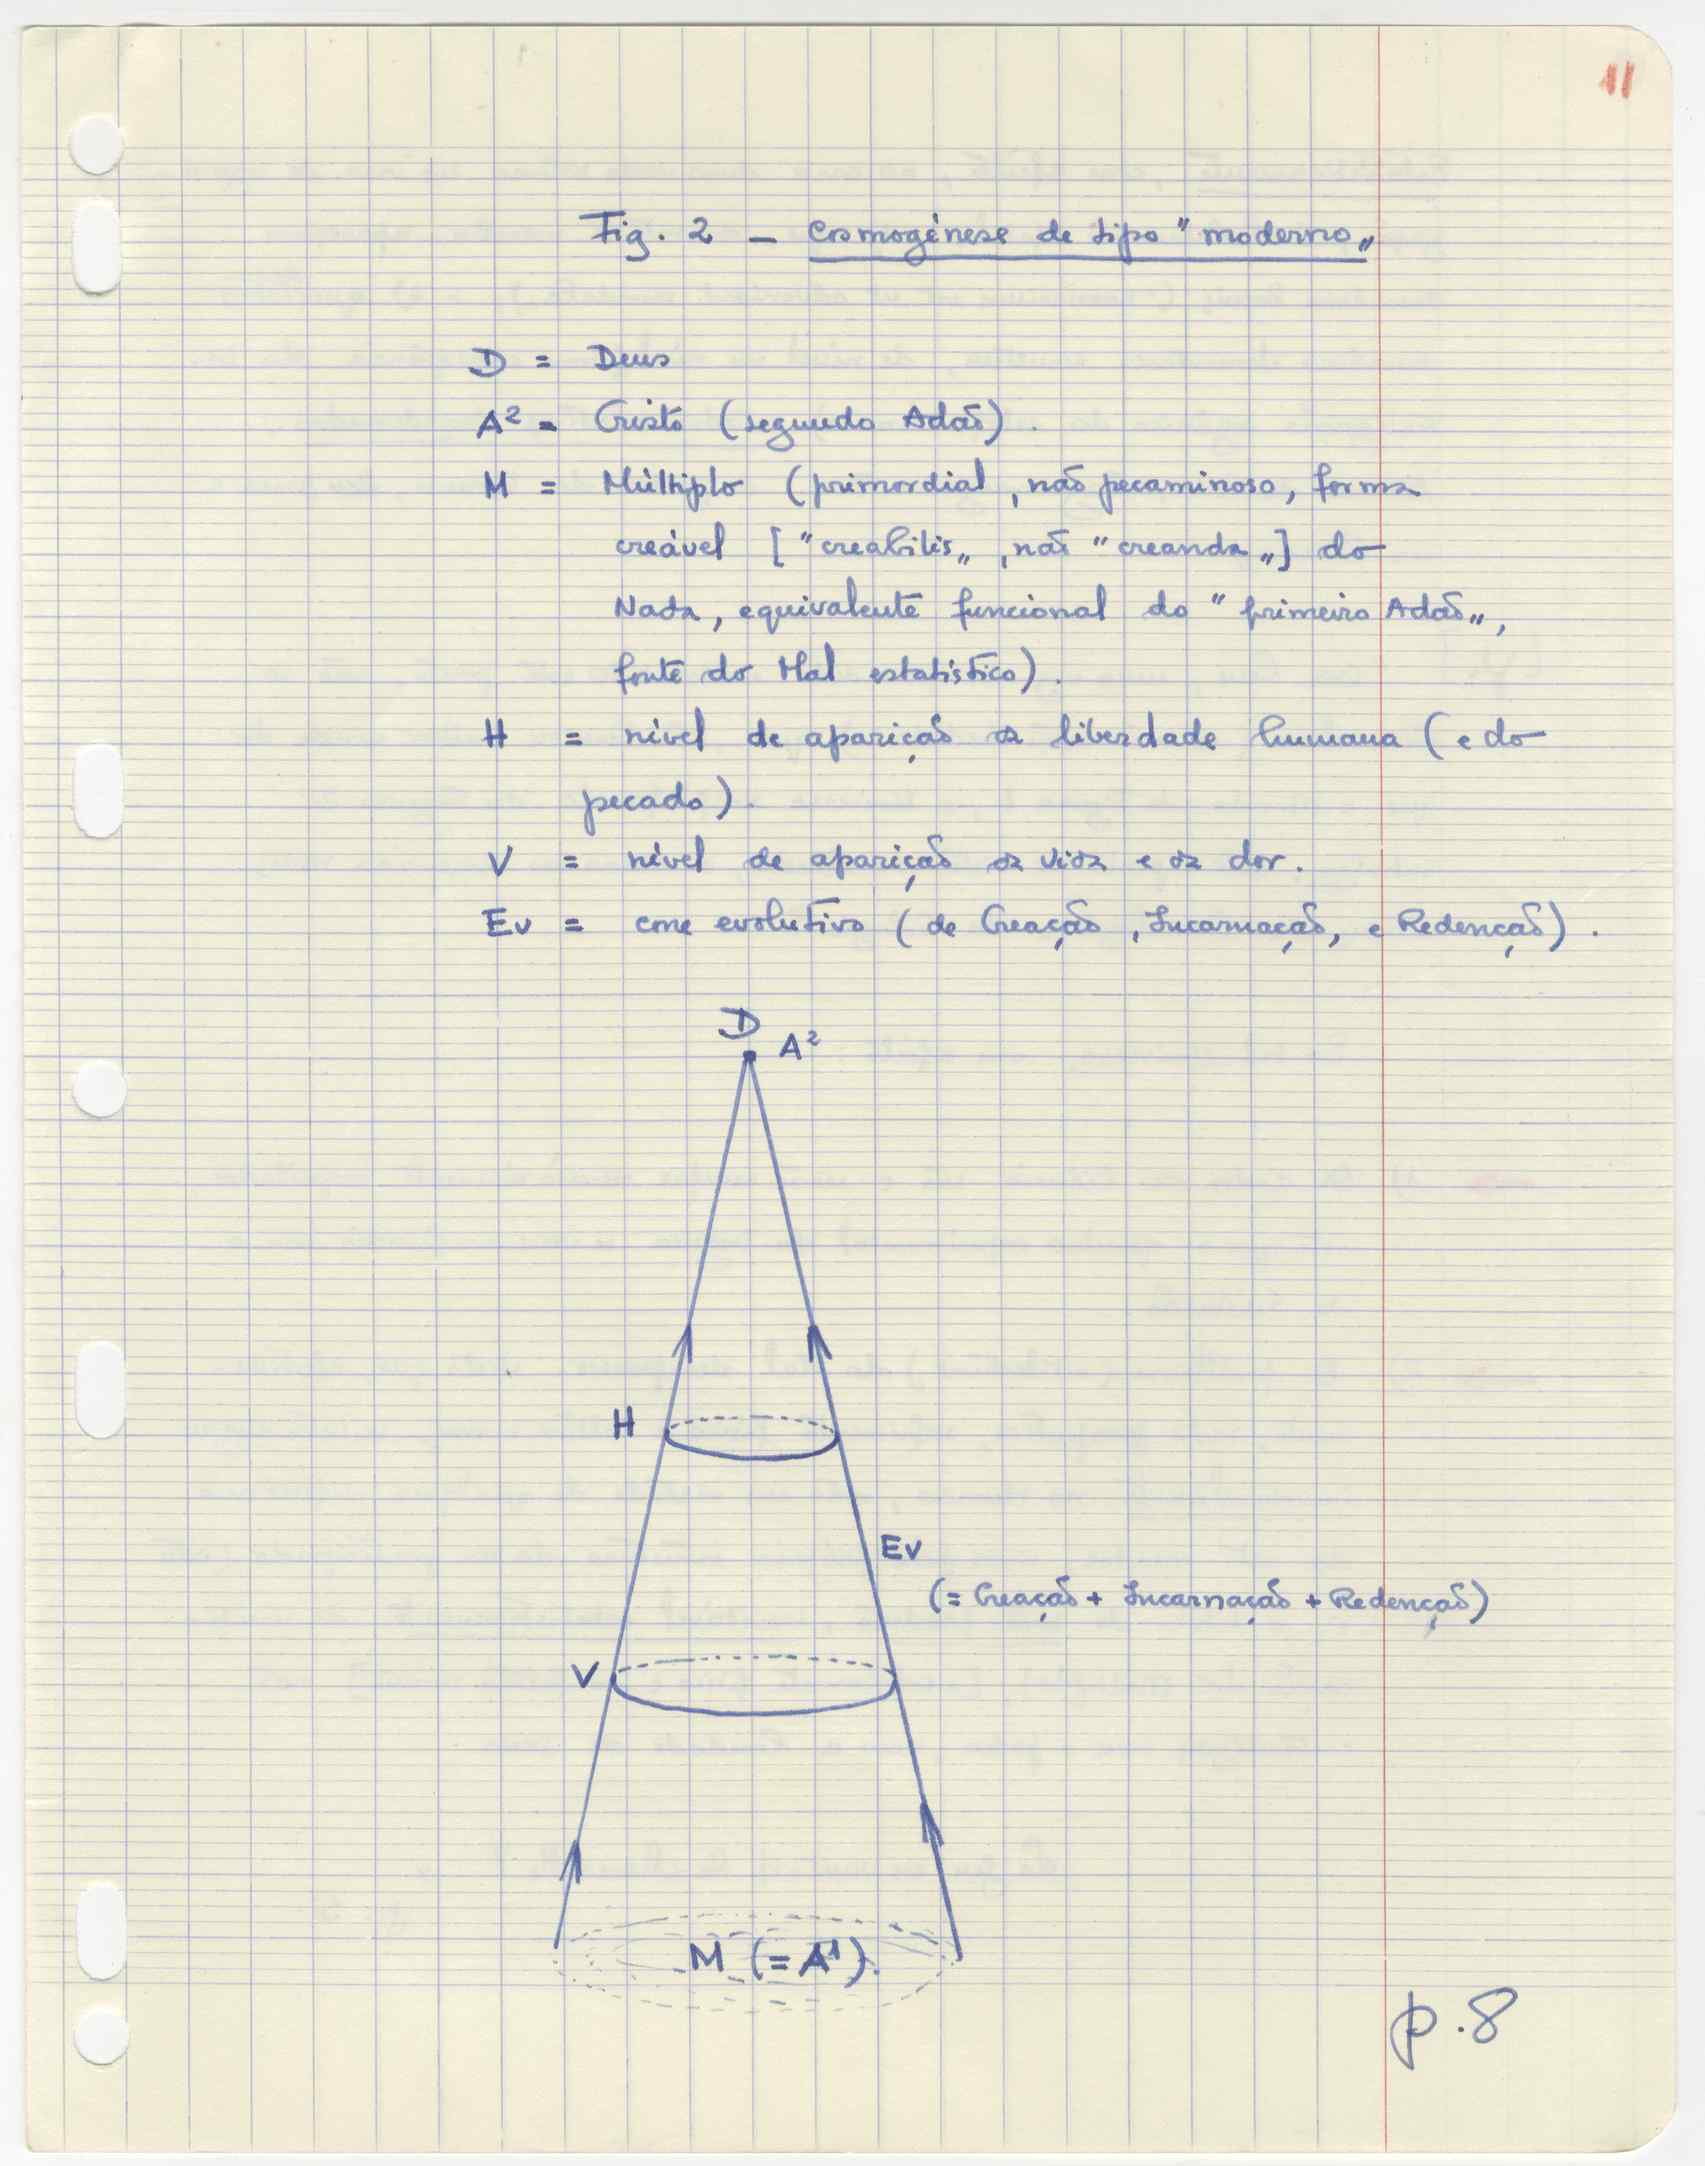 11
Fig. 2 — Cosmogénese de tipo "moderno„
D = Deus
A² = Cristo (segundo Adão).
M = Múltiplo (primordial, não pecaminoso, forma
creável ["creabilis„, não "creanda„] do
Nada, equivalente funcional do "primeiro Adão„,
fonte do Mal estatístico).
H = nível de aparição da liberdade humana (e do
pecado).
V = nível de aparição da vida e da dor.
Ev = cone evolutivo (de Creação, Incarnação, e Redenção).
D
A²
H
Ev
(= Creação + Incarnação + Redenção)
V
M (= A¹).
p.8